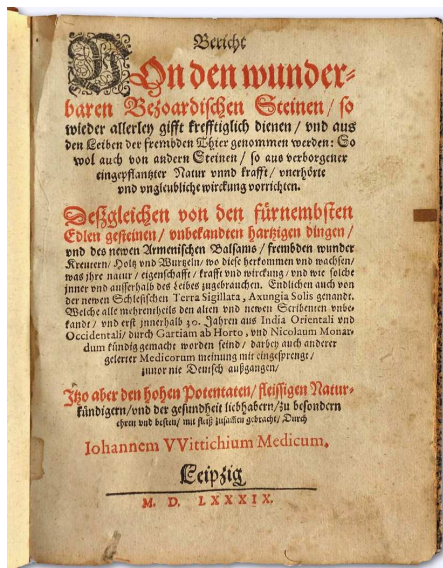 Bericht
Von den wunder-
baren Bezoardischen Steinen / so
wieder allerley gifft krefftiglich dienen / vnd aus
den Leiben der frembden Thier genommen werden: So
wol auch von andern Steinen / so aus verborgener
eingepflantzter Natur vnnd krafft / vnerhörte
vnd vngleubliche wirckung vorrichten.
Deßgleichen von den fürnembsten
Edlen gesteinen / vnbekandten hartzigen dingen /
vnd des newen Armenischen Balsams / frembden wunder
Kreutern / Holtz vnd Wurtzeln / wo diese herkommen vnd wachsen /
was jhre natur / eigenschafft / krafft vnd wirckung / vnd wie solche
jnner vnd ausserhalb des Leibes zugebrauchen. Endlichen auch von
der newen Schlesischen Terra Sigillata, Axungia Solis genandt.
Welche alle mehrentheils den alten vnd newen Scribenten vnbe-
kandt / vnd erst jnnerhalb 30. Jahren aus India Orientali vnd
Occidentali / durch Gartiam ab Horto, vnd Nicolaum Monar-
dum kündig gemacht worden seind / darbey auch anderer
gelerter Medicorum meinung mit eingesprengt /
zuuor nie Deutsch außgangen /
Itzo aber den hohen Potentaten / fleissigen Natur-
kündigern / vnd der gesundheit liebhabern / zu besondern
ehren vnd besten / mit fleiß zusamen gebracht / Durch
Iohannem VVittichium Medicum.
Leipzig
M. D. LXXXIX.